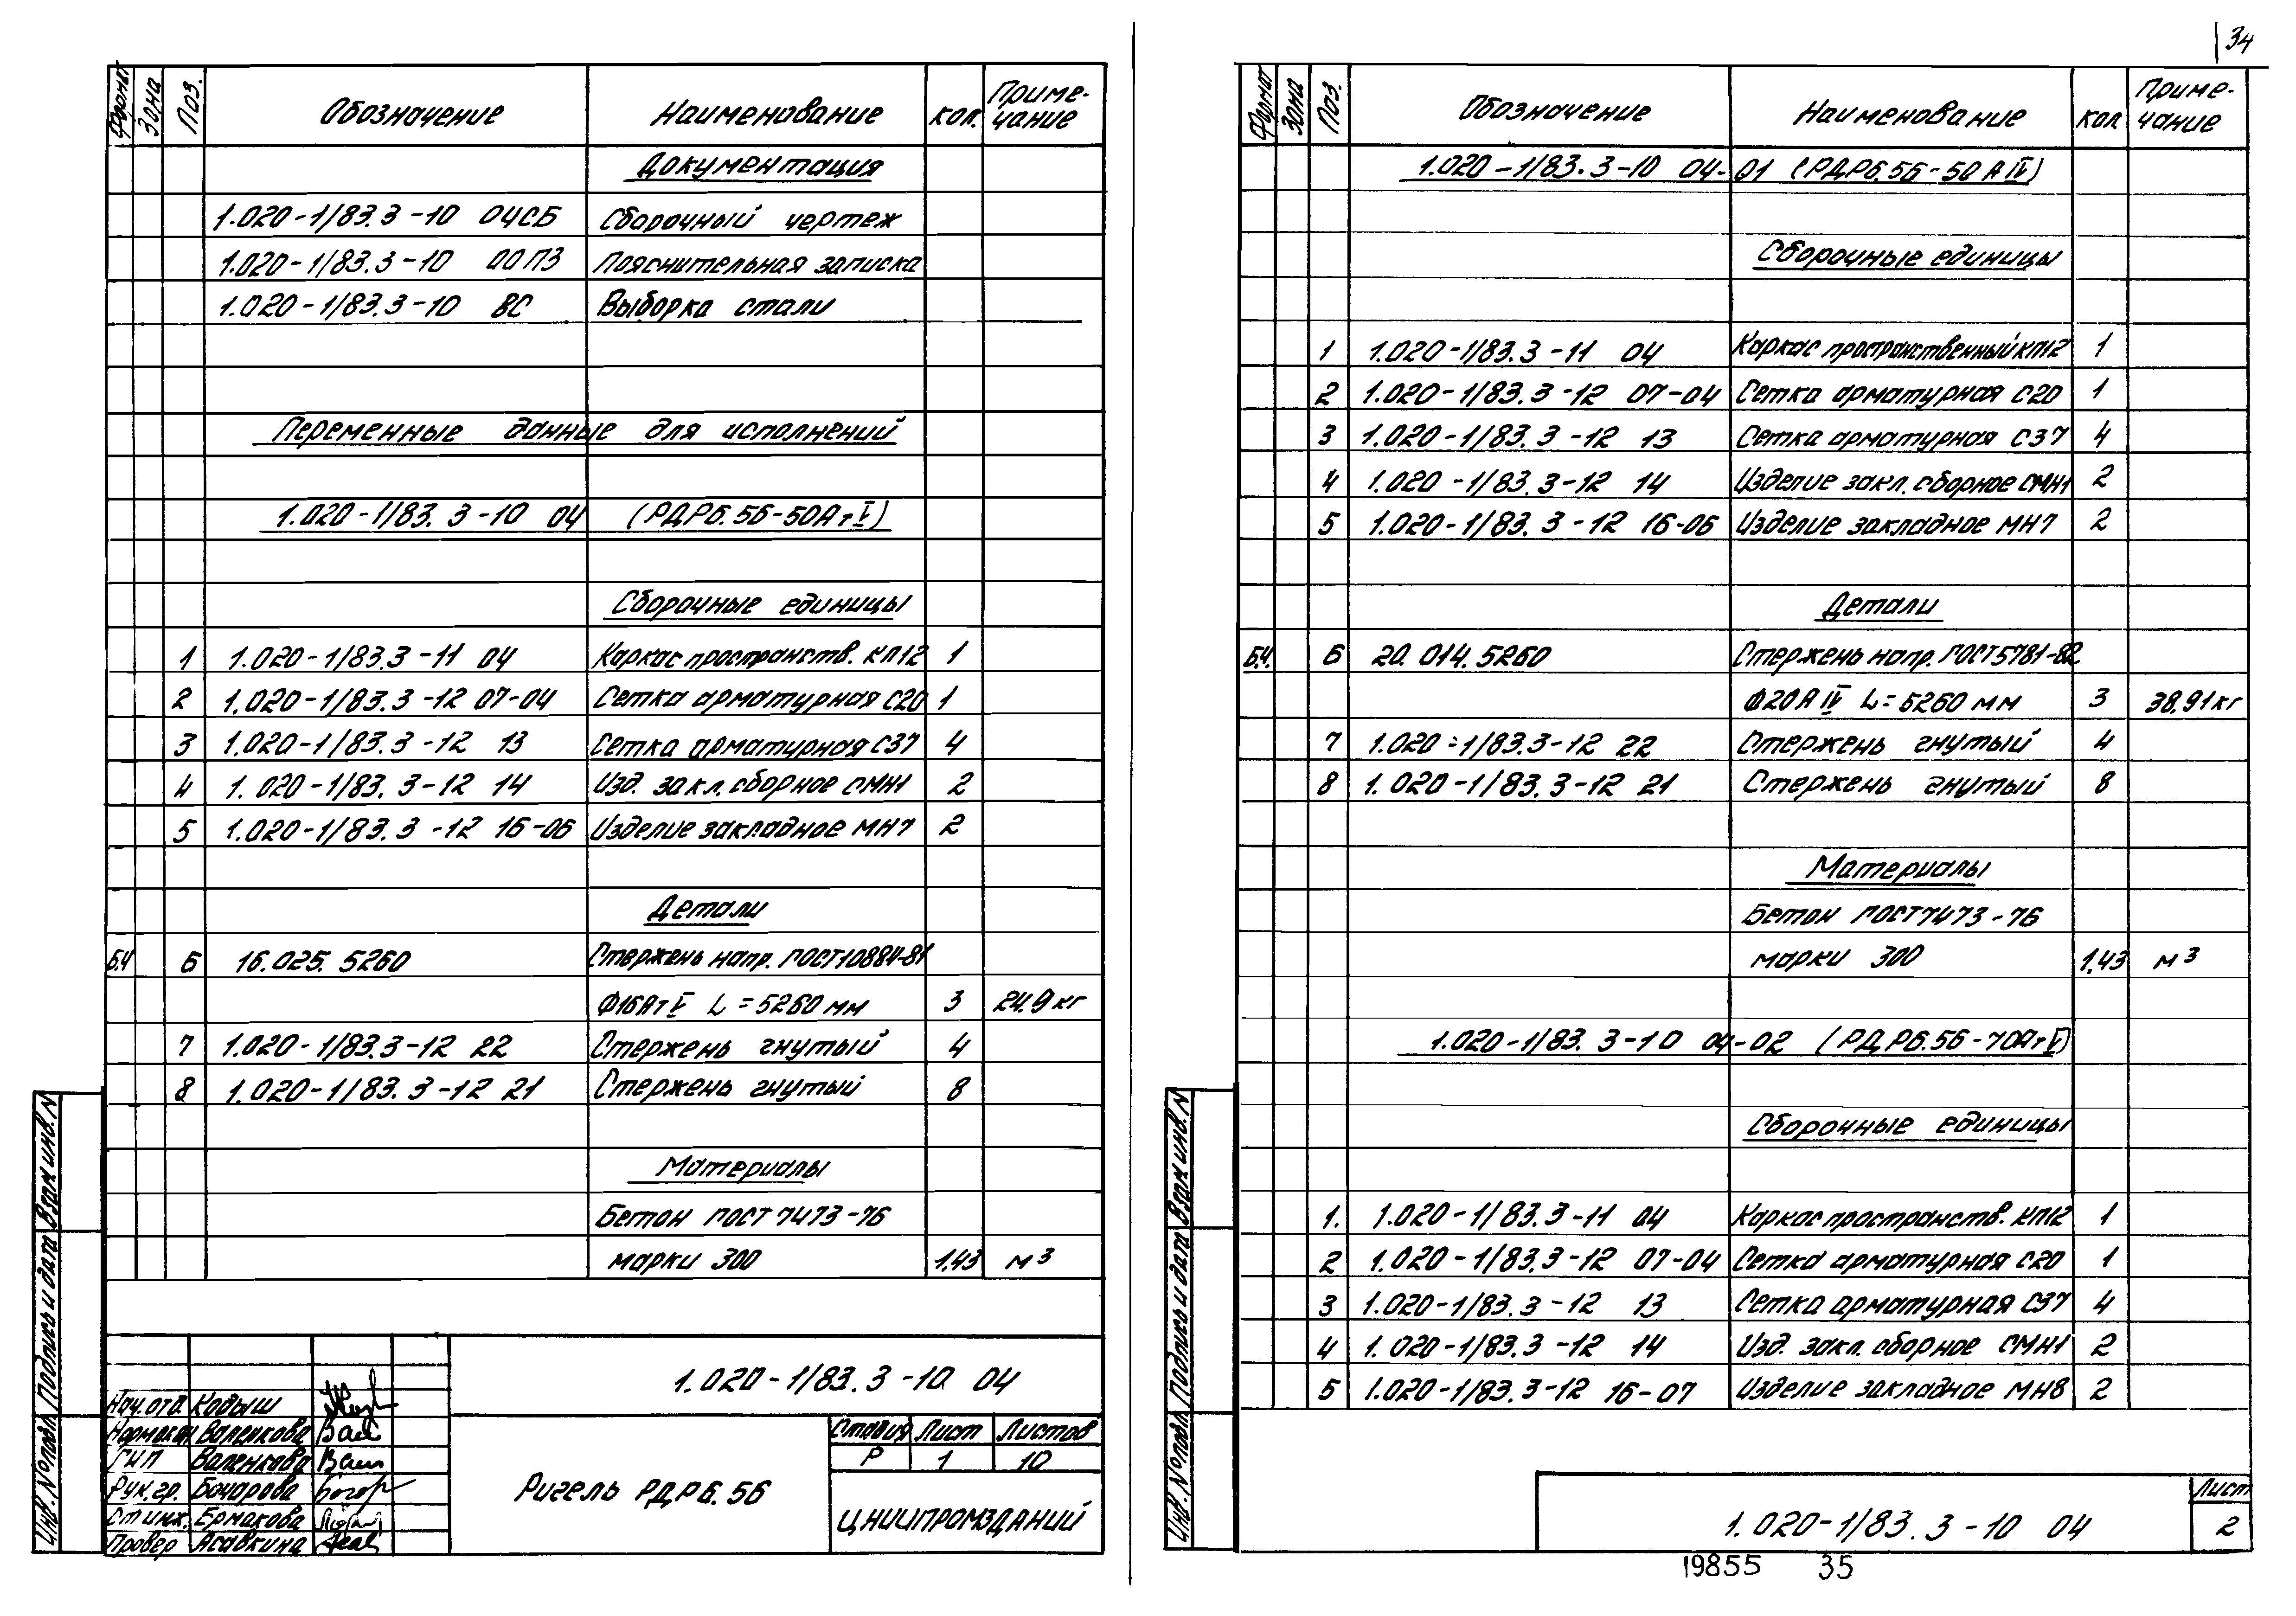 34
Формат Зона Поз. Обозначение Наименование Кол. Приме-
чание
Документация
1.020-1/83.3-10 04СБ Сборочный чертеж
1.020-1/83.3-10 00ПЗ Пояснительная записка
1.020-1/83.3-10 ВС Выборка стали
Переменные данные для исполнений
1.020-1/83.3-10 04 (РДР6.56-50АтV)
Сборочные единицы
1 1.020-1/83.3-11 04 Каркас пространств. КП12 1
2 1.020-1/83.3-12 07-04 Сетка арматурная С20 1
3 1.020-1/83.3-12 13 Сетка арматурная С37 4
4 1.020-1/83.3-12 14 Изд. закл. сборное СМН1 2
5 1.020-1/83.3-12 16-06 Изделие закладное МН7 2
Детали
БЧ 6 16.025.5260 Стержень напр. ГОСТ10884-81
Ф16АтV L=5260 мм 3 24.9 кг
7 1.020-1/83.3-12 22 Стержень гнутый 4
8 1.020-1/83.3-12 21 Стержень гнутый 8
Материалы
Бетон ГОСТ 7473-76
марки 300 1,43 м3
1.020-1/83.3-10 04
Нач. отд. Кодыш
Нормокон Валенкова
ГИП Валенкова
Рук. гр. Бочарова
Ст инж. Ермакова
Провер Асавкина
Ригель РДР6.56
Стадия Лист Листов
Р 1 10
ЦНИИПРОМЗДАНИЙ
Инв. № подл. Подпись и дата Взам инв. N
Формат Зона Поз. Обозначение Наименование Кол Приме-
чание
1.020-1/83.3-10 04-01 (РДР6.56-50АIV)
Сборочные единицы
1 1.020-1/83.3-11 04 Каркас пространственный КП12 1
2 1.020-1/83.3-12 07-04 Сетка арматурная С20 1
3 1.020-1/83.3-12 13 Сетка арматурная С37 4
4 1.020-1/83.3-12 14 Изделие закл. сборное СМН1 2
5 1.020-1/83.3-12 16-06 Изделие закладное МН7 2
Детали
БЧ. 6 20.014.5260 Стержень напр. ГОСТ5781-82
Ф20АIV L=5260 мм 3 38,91 кг
7 1.020-1/83.3-12 22 Стержень гнутый 4
8 1.020-1/83.3-12 21 Стержень гнутый 8
Материалы
Бетон ГОСТ7473-76
марки 300 1,43 м3
1.020-1/83.3-10 04-02 (РДР6.56-70АтV)
Сборочные единицы
1. 1.020-1/83.3-11 04 Каркас пространств. КП12 1
2 1.020-1/83.3-12 07-04 Сетка арматурная С20 1
3 1.020-1/83.3-12 13 Сетка арматурная С37 4
4 1.020-1/83.3-12 14 Изд. закл. сборное СМН1 2
5 1.020-1/83.3-12 16-07 Изделие закладное МН8 2
Инв. № подл. Подпись и дата Взам инв. N
1.020-1/83.3-10 04
Лист
2
19855 35